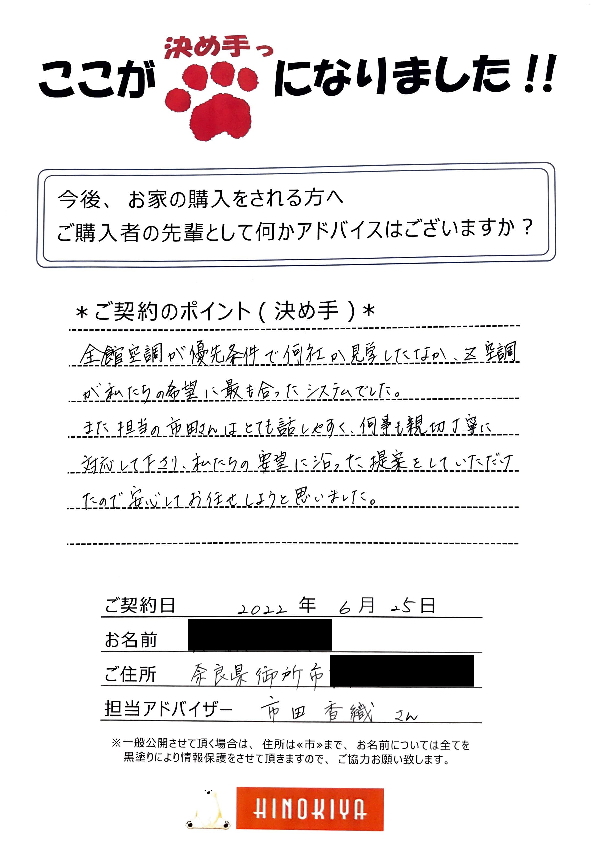 決め手っ
ここが になりました!!
今後、お家の購入をされる方へ
ご購入者の先輩として何かアドバイスはございますか？
＊ご契約のポイント（決め手）＊
全館空調が優先条件で何社か見学したなか、Z空調
が私たちの希望に最も合ったシステムでした。
また担当の市田さんはとても話しやすく、何事も親切丁寧に
対応して下さり、私たちの要望に沿った提案をしていただけ
たので安心してお任せしようと思いました。
ご契約日 2022 年 6 月 25 日
お名前
ご住所 奈良県御所市
担当アドバイザー 市田 香織 さん
※一般公開させて頂く場合は、住所は≪市≫まで、お名前については全てを
黒塗りにより情報保護をさせて頂きますので、ご協力お願い致します。
HINOKIYA